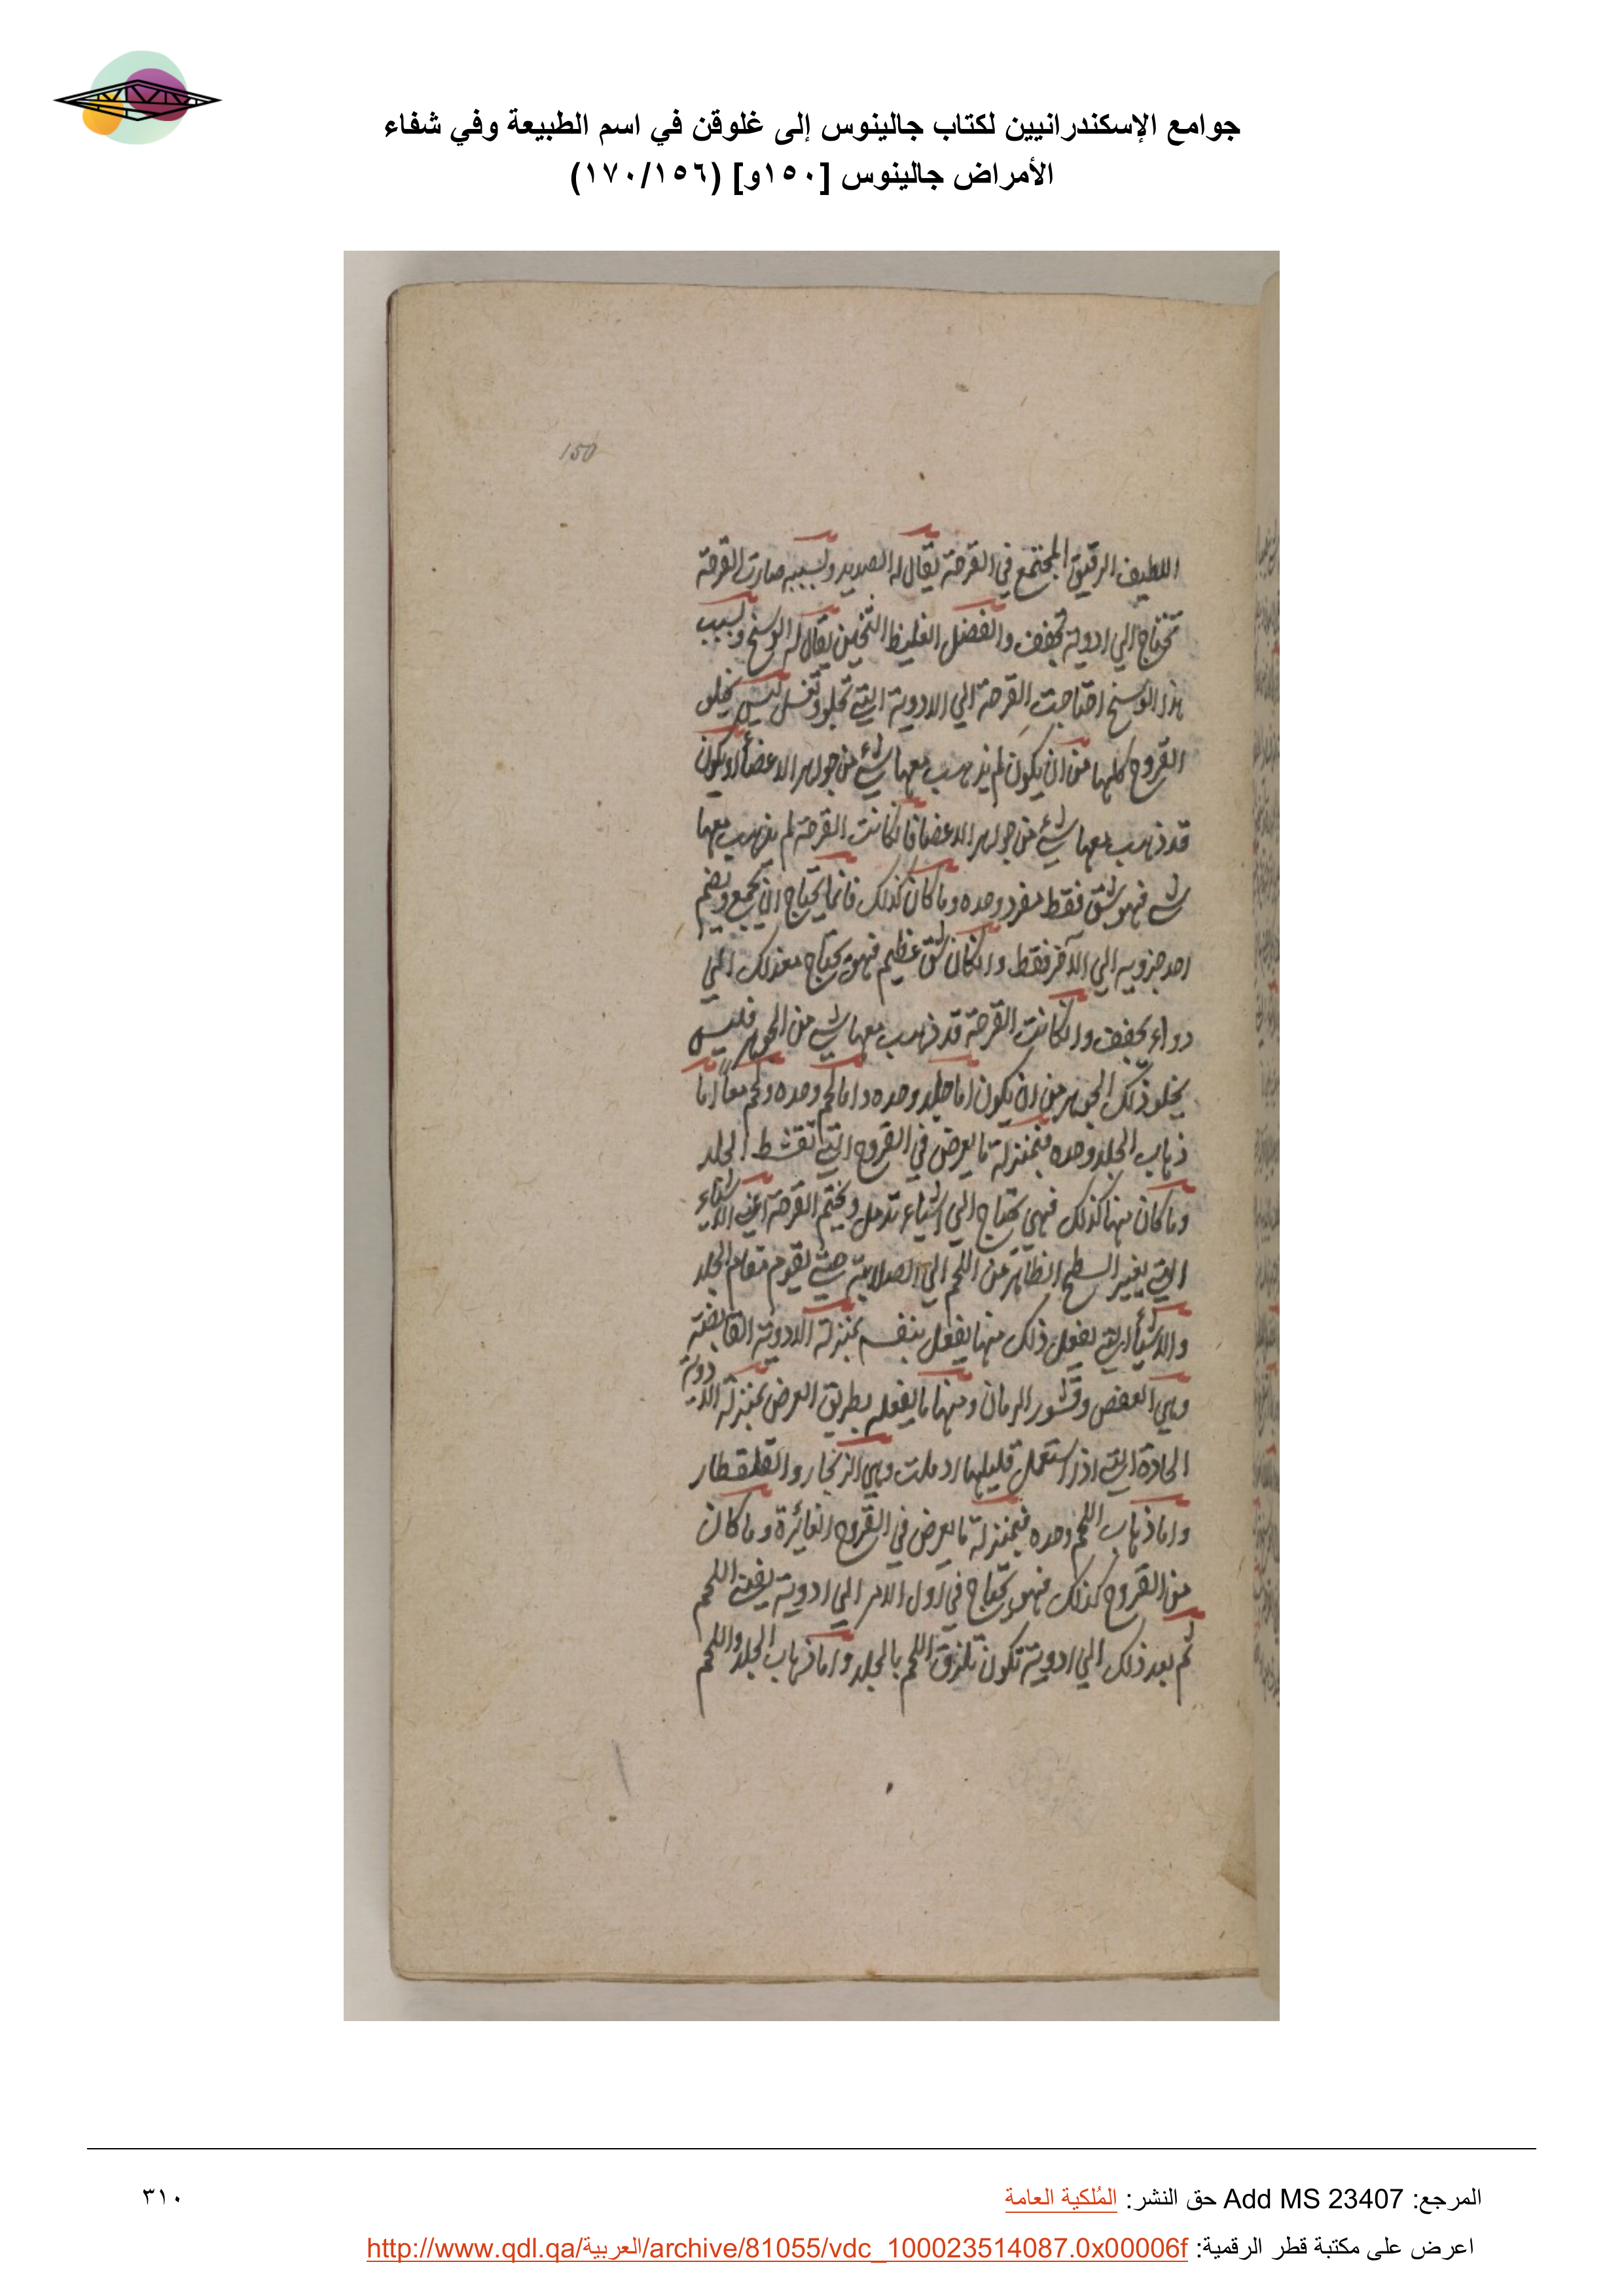 جوامع الإسكندرانيين لكتاب جالينوس إلى غلوقن في اسم الطبيعة وفي شفاء
الأمراض جالينوس [١٥٠و] (١٧٠/١٥٦)
150
اللطيف الرقيق المجتمع في القرحة يقال له الصديد ولسببه صارت القرحة
تحتاج الي ادوية تجفف والفضل الغليظ الثخين يقال له الوسخ وبسبب
هذا الوسخ احتاجت القرحة الي الادوية التي تجلو وتغسل ليس يخلو
القروح كلها من ان يكون لم يذهب معها شيء من جوهر الاعضاء او يكون
قد ذهب معها شيء من جوهر الاعضا فان كانت القرحة لم يذهب معها
شي فهو شق فقط مفرد وحده وما كان كذلك فانما يحتاج ان يجمع ويضم
احد جزويه الي الآخر فقط وان كان شق عظيم فهو يحتاج مع ذلك الي
دواء يجفف وان كانت القرحة قد ذهب معها شي من الجوهر فليس
يخلو ذلك الجوهر من ان يكون اما جلد وحده واما لحم وحده ولحم معا اما
ذهاب الجلد وحده فبمنزلة ما يعرض في القروح التي تقشط الجلد
وما كان منها كذلك فهي تحتاج الي اشياء تدمل وتختم القرحة اعني الاشياء
التي يغير السطح الظاهر من اللحم الي الصلابة حتي يقوم مقام الجلد
والاشيأ التي يفعل ذلك منها يفعل بنفسه بمنزلة الادوية القابضة
وهي العفص وقشور الرمان ومنها ما يفعله بطريق العرض بمنزلة الادوية
الحادة التي اذا استعمل قليلها ادملت وهي الزنجار والقلقطار
واما ذهاب اللحم وحده فبمنزلة ما يعرض في القروح الغائرة وما كان
من القروح كذلك فهو يحتاج في اول الامر الي ادوية ينبت اللحم
ثم بعد ذلك الي ادوية تكون تلزق اللحم بالجلد واما ذهاب الجلد واللحم
المرجع: Add MS 23407 حق النشر: المُلكية العامة
٣١٠
اعرض على مكتبة قطر الرقمية: http://www.qdl.qa/العربية/archive/81055/vdc_100023514087.0x00006f